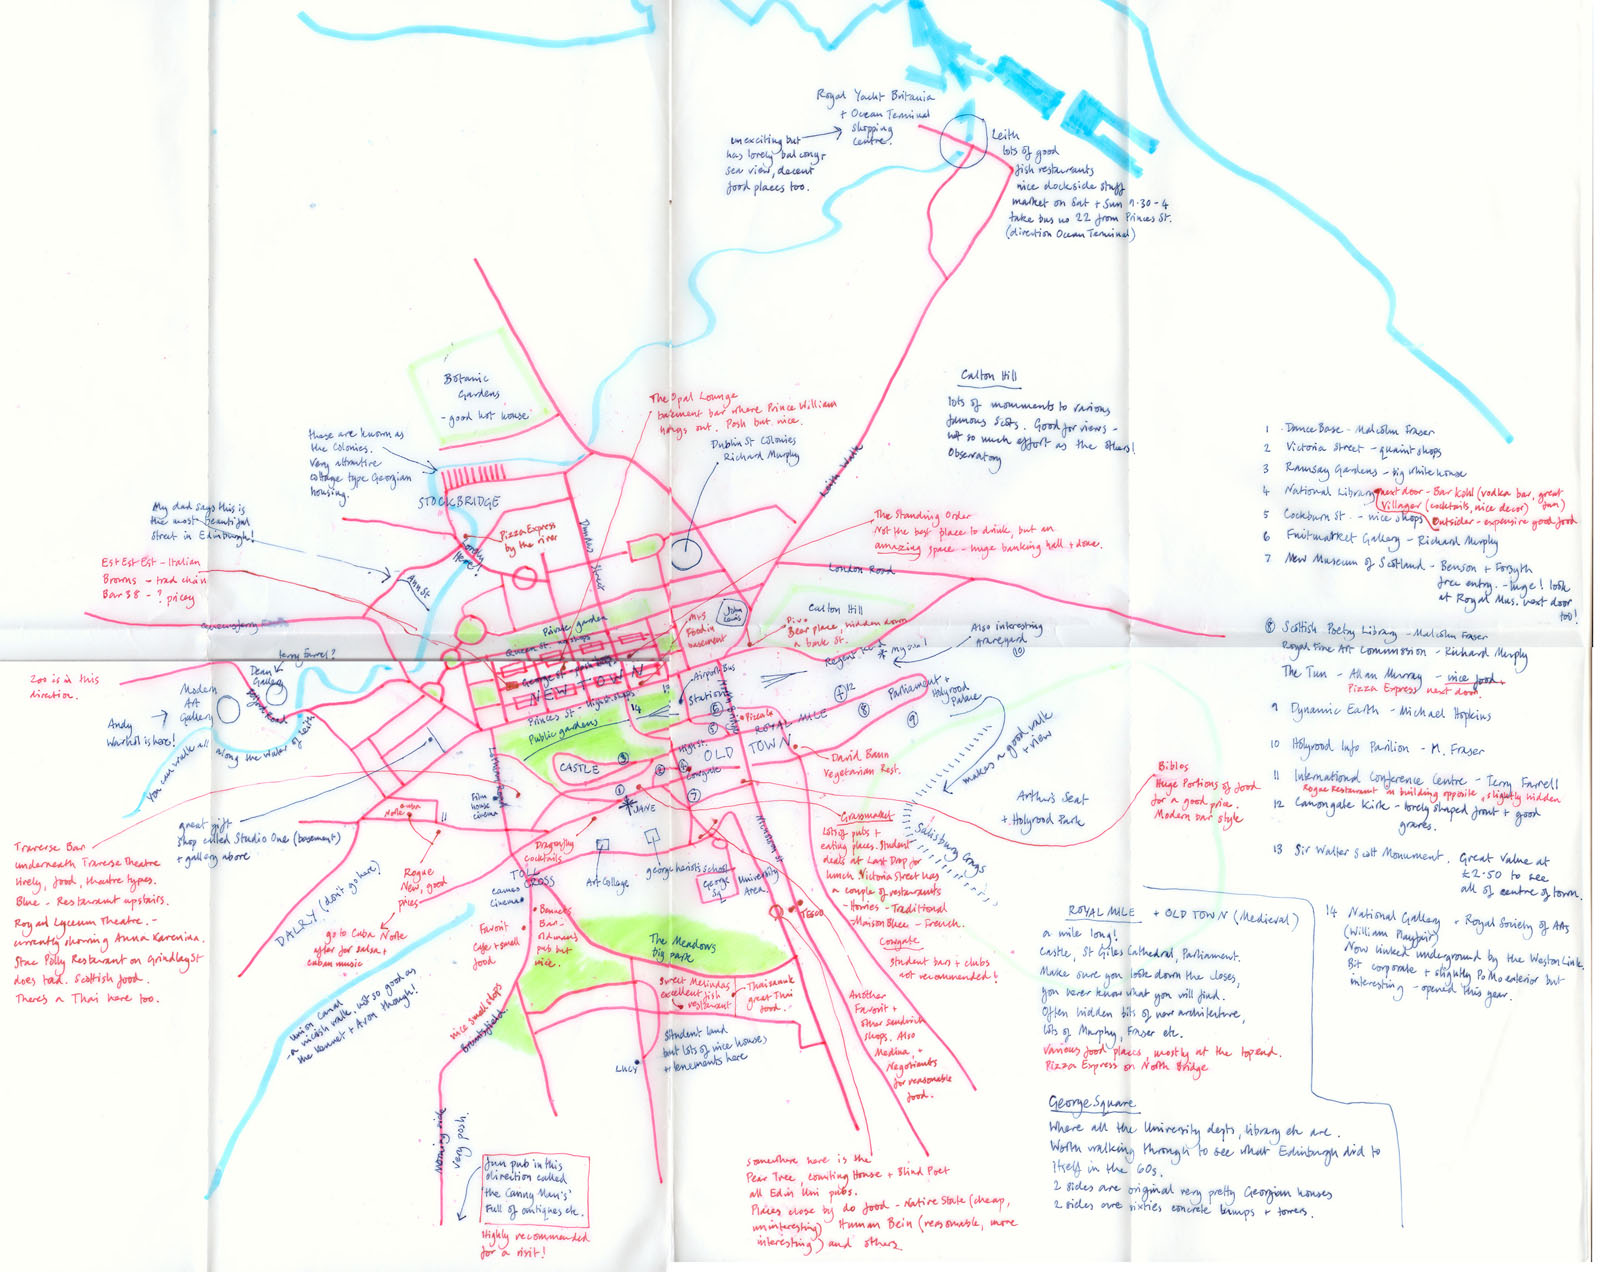 Royal Yacht Britania
+ Ocean Terminal
shopping
centre.
unexciting but
has lovely balcony,
sea view, decent
food places too.
Leith
lots of good
fish restaurants
nice dockside stuff
market on Sat + Sun
take bus no 22 from Princes St.
(direction Ocean Terminal)
Botanic
Gardens
- good hot house
these are known as
the Colonies.
Very attractive
cottage type Georgian
housing.
STOCKBRIDGE
The Opal Lounge
basement bar where Prince William
hangs out. Posh but nice.
Dublin St Colonies
Richard Murphy
Calton Hill
lots of monuments to various
famous Scots. Good for views -
not so much effort as the others!
Observatory
Leith Walk
My dad says this is
the most beautiful
street in Edinburgh!
Pizza Express
by the river
Lovely
Here!
Ann St
Dundas Street
Est Est Est - Italian
Browns - trad chain
Bar 38 - ? pricey
The Standing Order
Not the best place to drink, but an
amazing space - huge banking hall + dome.
London Road
Queensferry
John
Lewis
M+S
Food in
basement
Calton Hill
Pivo
Beer place, hidden down
a back st.
Regent Road
* my son!
Also interesting
graveyard
(10)
Private garden
Queen St.
George St - posh shops
NEW TOWN
Princes St - High st shops
Public gardens
14
13
Airport Bus
Station
Terry Farrel?
Dean
Gallery
Modern
Art
Gallery
Belford Road
Zoo is in this
direction.
Andy
Warhol is here!
You can walk all along the Water of Leith
CASTLE
OLD
TOWN
ROYAL MILE
High St.
Cowgate
North Bridge
Parliament +
Holyrood
Palace
makes a good walk
+ view
Arthur's Seat
+ Holyrood Park
Salisbury Crags
David Bann
Vegetarian Rest.
Biblos
Huge Portions of food
for a good price.
Modern bar style
Lothian Road
Film
house
cinema
JANE
great gift
shop called Studio One (basement)
+ gallery above
Traverse Bar
underneath Traverse theatre
lively, food, theatre types.
Blue - Restaurant upstairs.
Royal Lyceum Theatre. -
currently showing Anna Karenina.
Stac Polly Restaurant on Grindlay St
does trad. Scottish food.
There's a Thai here too.
Cuba
Norte
11
Rogue
New, good
prices
go to Cuba Norte
after for salsa +
Cuban music
DALRY (don't go here!)
Dragonfly
cocktails
TOLL
CROSS
Cameo
Cinema
Art College
George Heriots School
George
Sq
University
Area.
Nicolson St
TESCO
Grassmarket
Lots of pubs +
eating places. Student
deals at Last Drop for
lunch. Victoria Street has
a couple of restaurants
- Howies - Traditional
Maison Bleue - French.
Cowgate
Student bars + clubs
not recommended!
Favorit
Cafe + small
food
Bennets
Bar -
old mans
pub but
nice.
The Meadows
big park
Sweet Melindas
excellent fish
restaurant
Thaisanuk
great Thai
food.
Another
Favorit +
other sandwich
shops. Also
Medina, +
Negotiants
for reasonable
food.
Student land
but lots of nice houses
+ tenements here
LUCY
nice small shops
Bruntsfield.
Union Canal
- a nicish walk, not so good as
the Kennet + Avon though!
Morning side
very posh.
fun pub in this
direction called
the 'Canny Man's'
Full of antiques etc.
Highly recommended
for a visit!
Somewhere here is the
Pear Tree, Counting House + Blind Poet
all Edin Uni pubs.
Places close by do food - Native State (cheap,
uninteresting) Human Bein (reasonable, more
interesting) and others
1 Dance Base - Malcolm Fraser
2 Victoria Street - quaint shops
3 Ramsay Gardens - big white house
4 National Library next door - Bar Kohl (vodka bar, great fun)
Villager (cocktails, nice decor)
5 Cockburn St. - nice shops Outsider - expensive good food
6 Fruitmarket Gallery - Richard Murphy
7 New Museum of Scotland - Benson + Forsyth
free entry. - huge! look
at Royal Mus. next door
too!
8 Scottish Poetry Library - Malcolm Fraser
Royal Fine Art Commission - Richard Murphy
The Tun - Allan Murray - nice food +
Pizza Express next door.
9 Dynamic Earth - Michael Hopkins
10 Holyrood Info Pavilion - M. Fraser
11 International Conference Centre - Terry Farrell
Rogue Restaurant in building opposite, slightly hidden
12 Canongate Kirk - lovely shaped front + good
graves.
13 Sir Walter Scott Monument. Great value at
£2.50 to see
all of centre of town.
14 National Gallery + Royal Society of Arts
(William Playfair)
Now linked underground by the Weston Link.
Bit corporate + slightly PoMo exterior but
interesting - opened this year.
ROYAL MILE + OLD TOWN (Medieval)
a mile long!
Castle, St Giles Cathedral, Parliament.
Make sure you look down the closes,
you never know what you will find.
Often hidden bits of new architecture,
lots of Murphy, Fraser etc.
Various food places, mostly at the top end.
Pizza Express on North Bridge
George Square
Where all the University depts, library etc are.
Worth walking through to see what Edinburgh did to
itself in the 60s.
2 sides are original very pretty Georgian houses
2 sides are sixties concrete lumps + towers.